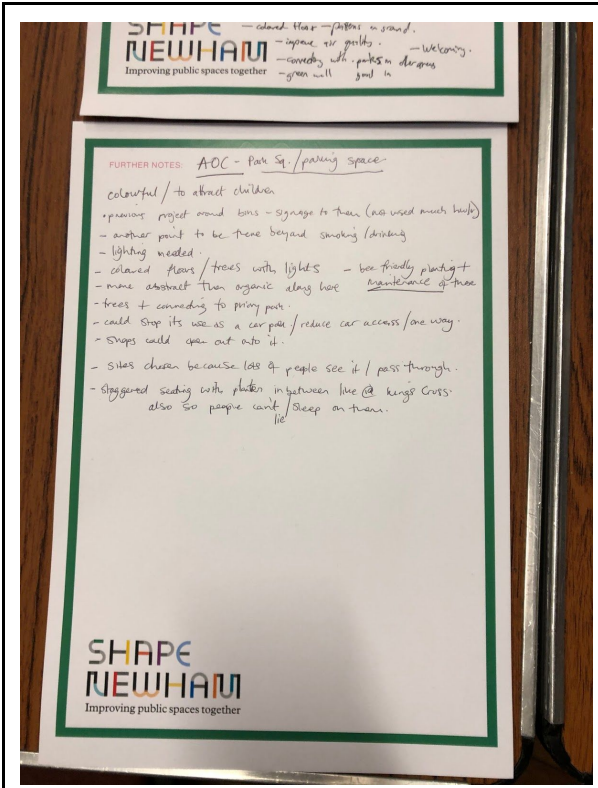 SHAPE
NEWHAM
Improving public spaces together
- coloured floor - patterns on ground.
- improve air quality.
- Welcoming.
- connecting with parks in other areas
- green wall
FURTHER NOTES: AOC - Park Sq. / parking space
colourful / to attract children
• previous project around bins - signage to them (not used much)
- another point to be there beyond smoking / drinking
- lighting needed.
- coloured floors / trees with lights
- bee friendly planting +
- more abstract than organic along here
maintenance of these
- trees + connecting to priory park.
- could stop its use as a car park / reduce car access / one way.
- shops could open out onto it.
- sites chosen because lots of people see it / pass through.
- staggered seating with planter in between like @ kings Cross.
also so people can't lie / sleep on them.
SHAPE
NEWHAM
Improving public spaces together